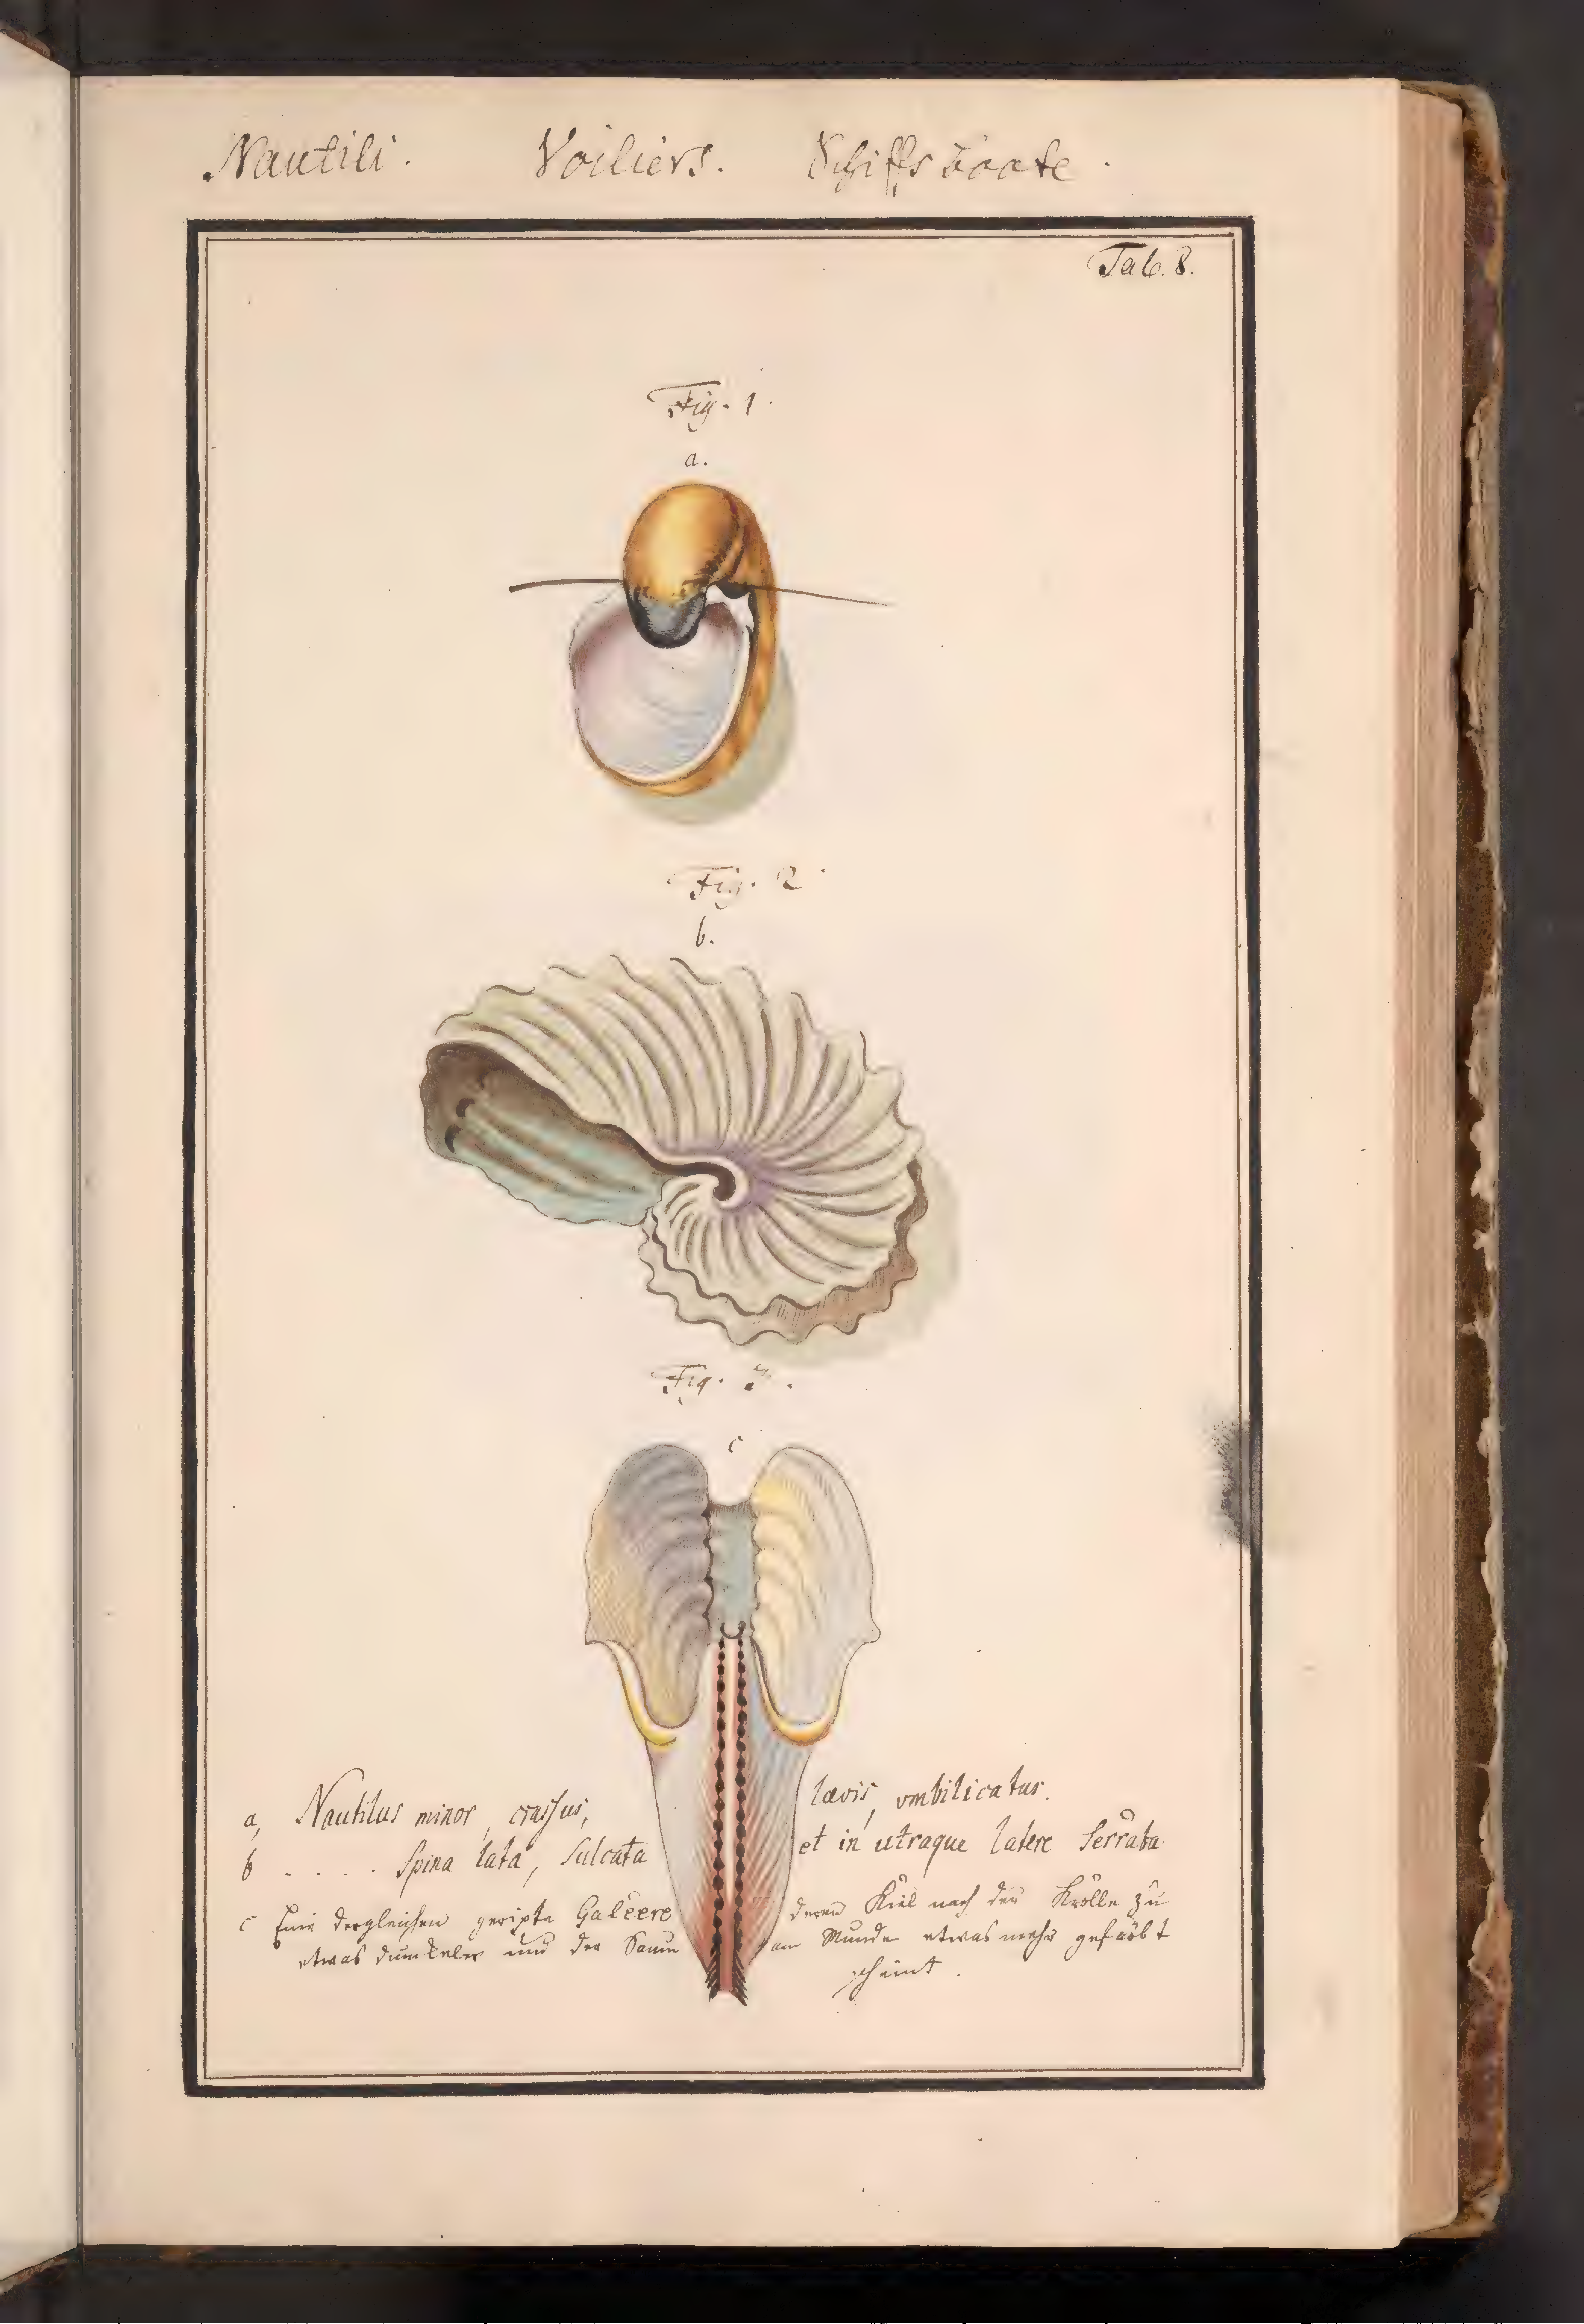 Nautili. Voiliers. Schiffsboote.
Tab. 8.
Fig. 1.
a.
Fig. 2.
b.
Fig. 3.
c
a, Nautilus minor, crassus, lævis, vmbilicatus.
b . . . . Spina lata, Sulcata et in utraque latere Serrata
c Eine dergleichen geripte Galeere deren Kiel nach der Krölle zu
etwas dunkeler und der Saum am Munde etwas mehr gefärbt
scheint.